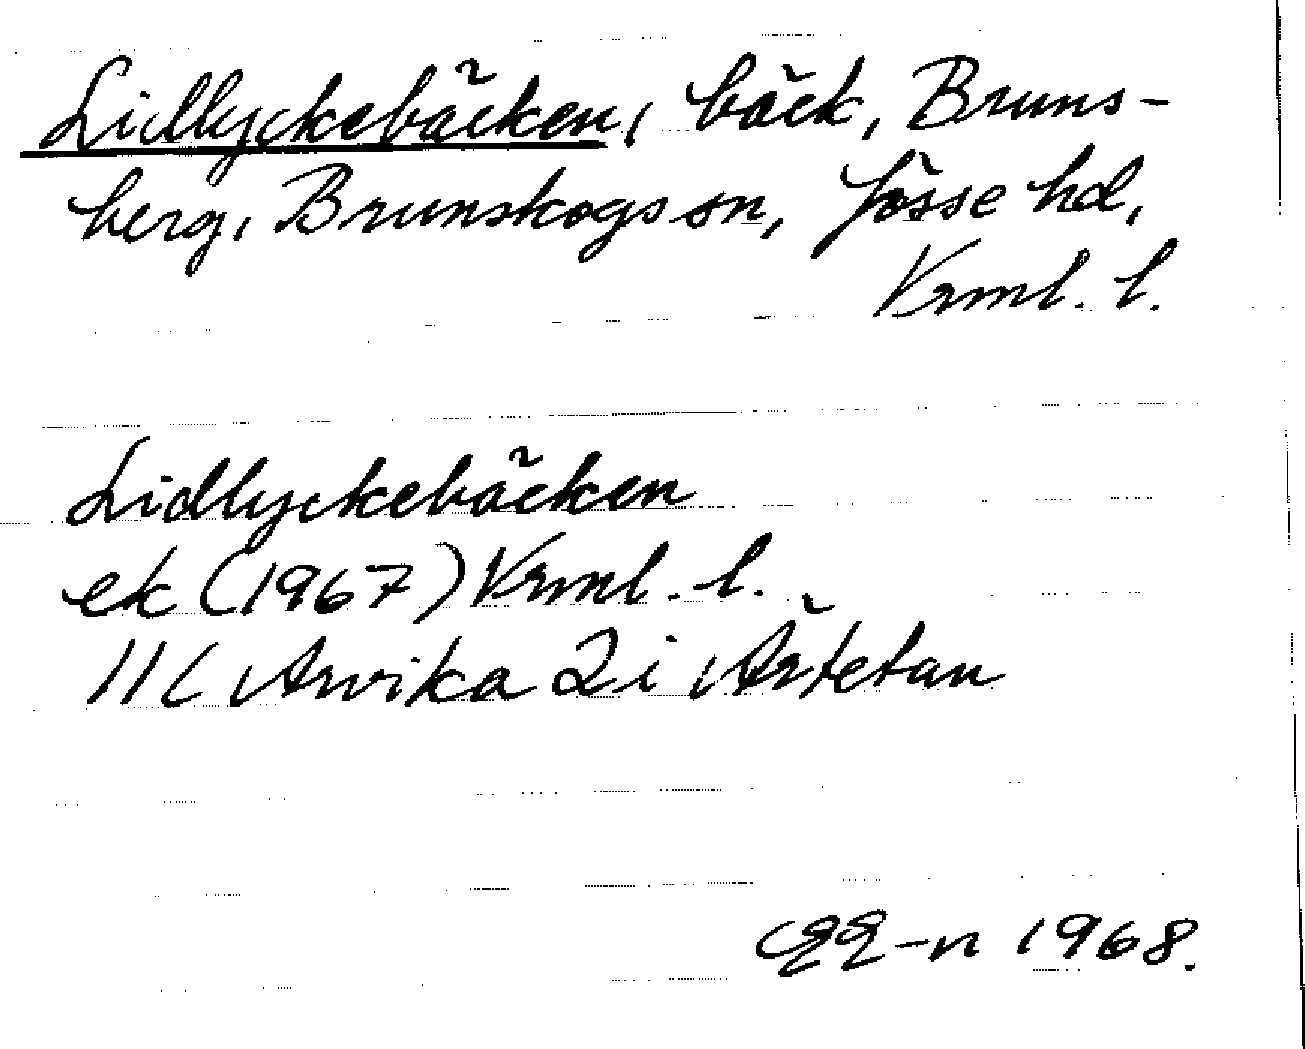 Lidlyckebäcken, bäck, Bruns-
berg, Brunskogs sn, Jösse hd,
Vrml. l.
Lidlyckebäcken
ek (1967) Vrml. l.
11C Arvika 2i Ärtetan
1968.